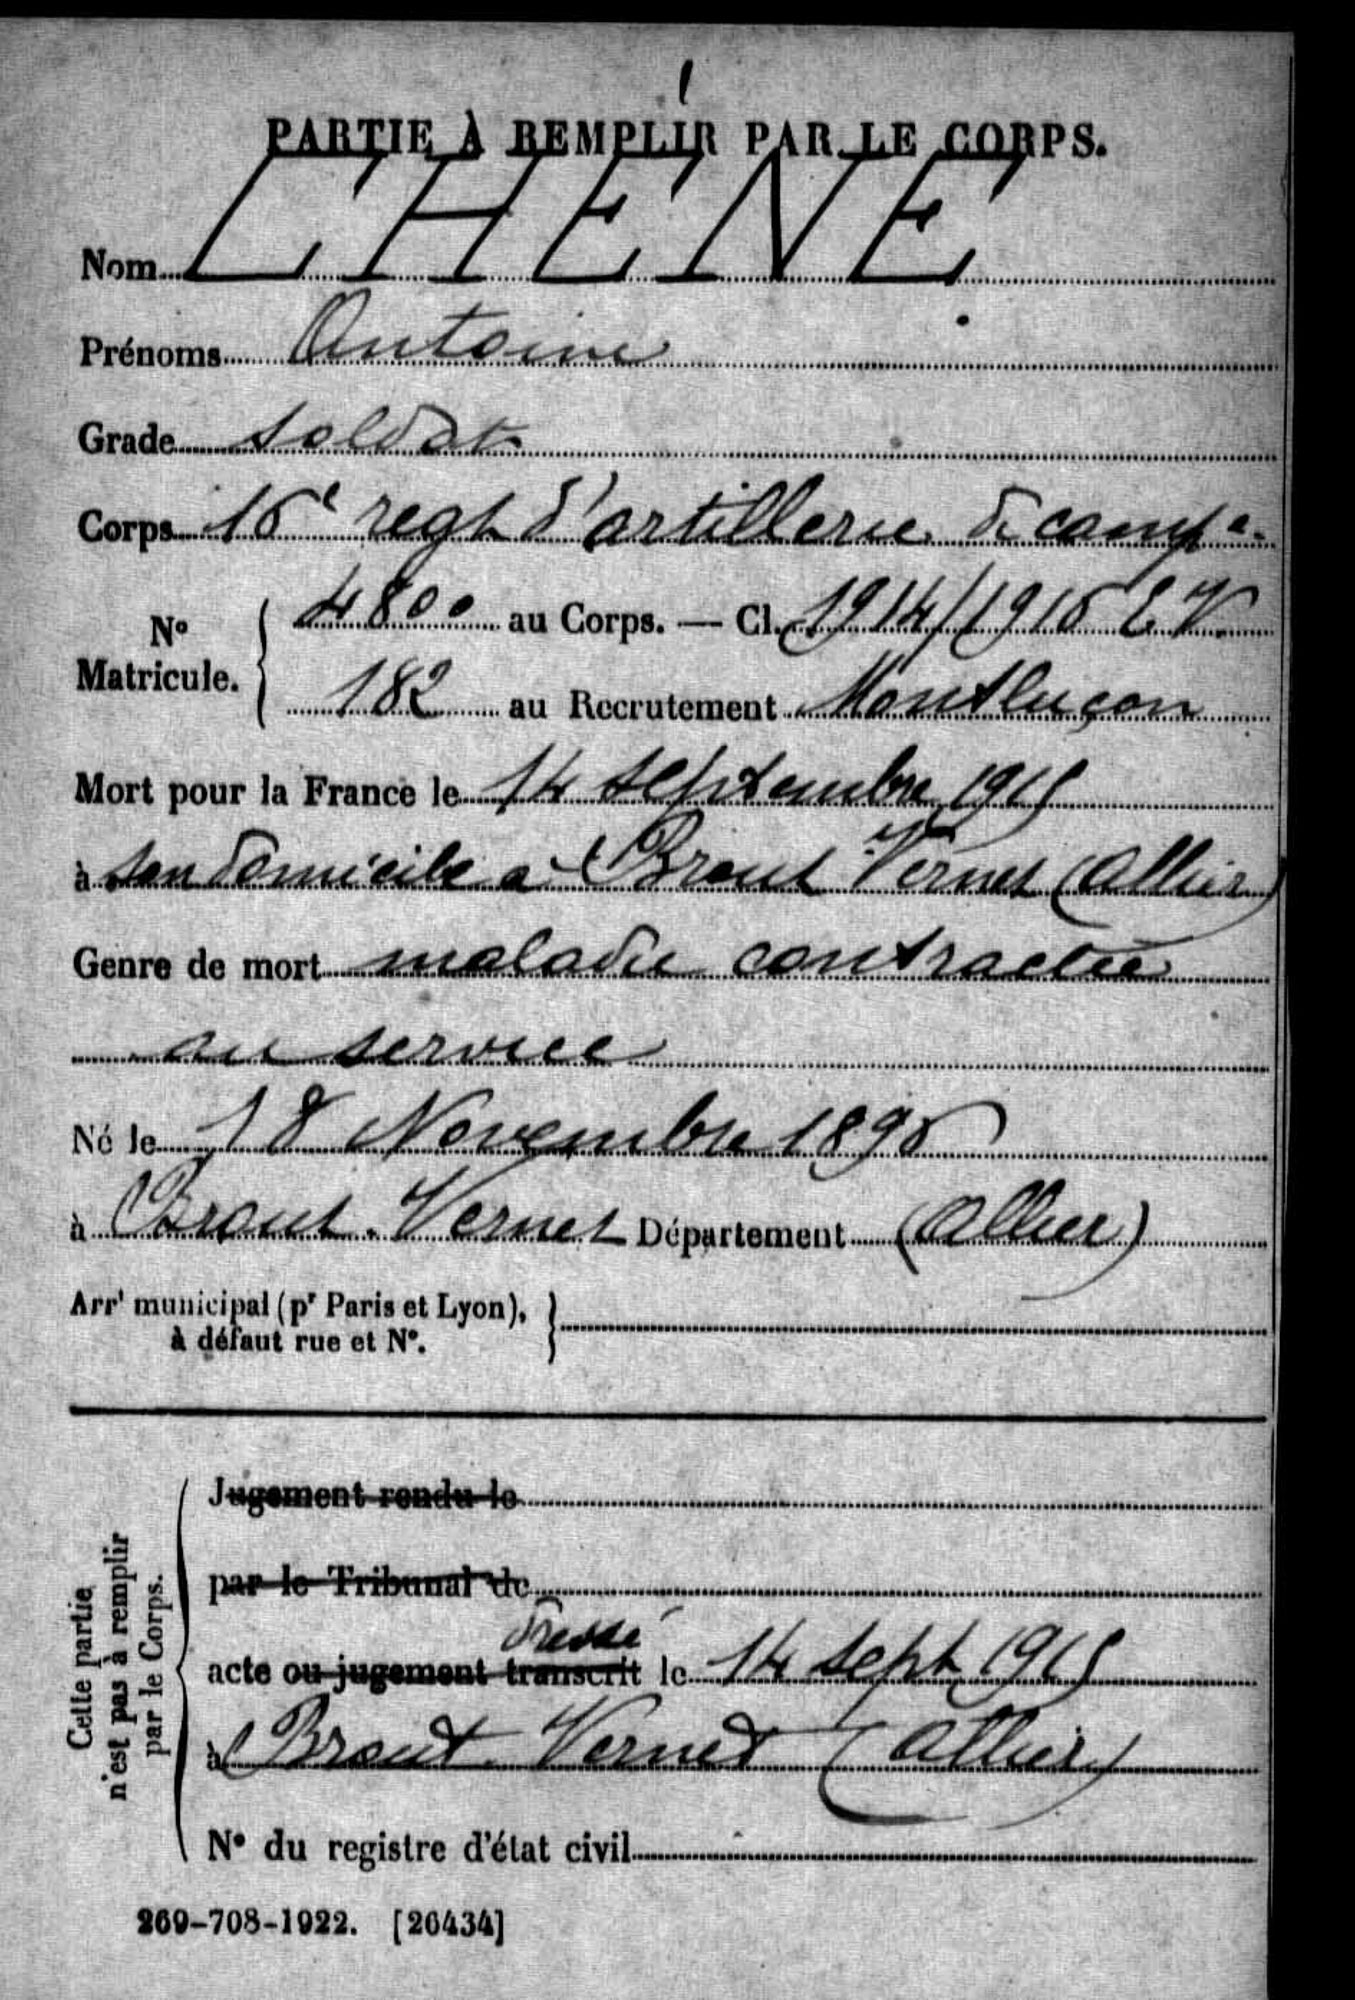 PARTIE À REMPLIR PAR LE CORPS.
Nom CHENE
Prénoms Antoine
Grade soldat
Corps 16e regt d'artillerie de campe.
No Matricule. 4800 au Corps. — Cl. 1914/1915 E V.
182 au Recrutement Montluçon
Mort pour la France le 14 septembre 1915
à son domicile a Brout Vernet (Allier)
Genre de mort maladie contractée
au service
Né le 18 Novembre 1895
à Brout. Vernet Département (Allier)
Arrt municipal (pr Paris et Lyon),
à défaut rue et No.
Cette partie
n'est pas à remplir
par le Corps.
Jugement rendu le
par le Tribunal de
dressé
acte ou jugement transcrit le 14 sept 1915
à Brout. Vernet (Allier)
No du registre d'état civil
269-708-1922. [26434]